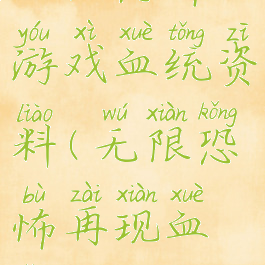 yóu xì xuè tǒng zī
游戏血统资
liào wú xiàn kǒng
料(无限恐
bù zài xiàn xuè
怖再现血